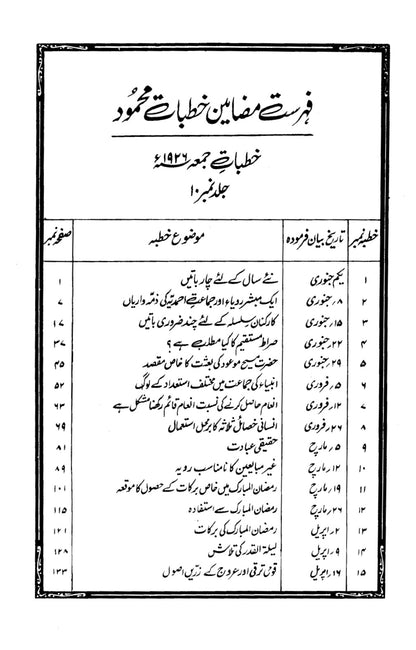 فہرست مضامین خطبات محمود
خطبات جمعہ ۱۹۲۶ء
جلد نمبر ۱۰
خطبہ نمبر تاریخ بیان فرمودہ موضوع خطبہ صفحہ نمبر
۱ یکم جنوری نئے سال کے لئے چار باتیں ۱
۲ ۸؍ جنوری ایک مبشر رویاء اور جماعت احمدیہ کی ذمہ داریاں ۷
۳ ۱۵؍ جنوری کارکنان سلسلہ کے لئے چند ضروری باتیں ۱۷
۴ ۲۲؍ جنوری صراط مستقیم کا کیا مطلب ہے؟ ۳۷
۵ ۲۹؍ جنوری حضرت مسیح موعود کی بعثت کا خاص مقصد ۴۵
۶ ۵؍ فروری انبیاء کی جماعت میں مختلف استعداد کے لوگ ۵۲
۷ ۱۲؍ فروری انعام حاصل کرنے کی نسبت انعام قائم رکھنا مشکل ہے ۶۳
۸ ۲۶؍ فروری انسانی خصائل ثلاثہ کا برمحل استعمال ۶۹
۹ ۵؍ مارچ حقیقی عبادت ۸۱
۱۰ ۱۲؍ مارچ غیر مبایعین کا نامناسب رویہ ۸۹
۱۱ ۱۹؍ مارچ رمضان المبارک میں خاص برکات کے حصول کا موقعہ ۱۰۱
۱۲ ۲۶؍ مارچ رمضان المبارک سے استفادہ ۱۱۵
۱۳ ۲؍ اپریل رمضان المبارک کی برکات ۱۲۱
۱۴ ۹؍ اپریل لیلۃ القدر کی تلاش ۱۲۸
۱۵ ۱۶؍ اپریل قومی ترقی اور عروج کے زریں اصول ۱۳۳